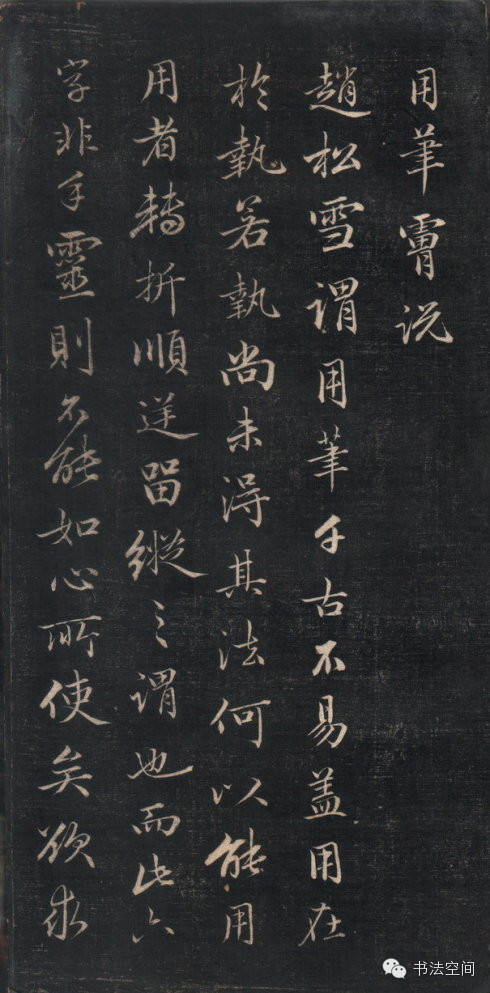 用筆膚説
趙松雪謂用筆千古不易蓋用在
於執若執尚未得其法何以能用
用者轉折順逆留縱之謂也而此六
字非手靈則不能如心所使矣欲求
书法空间